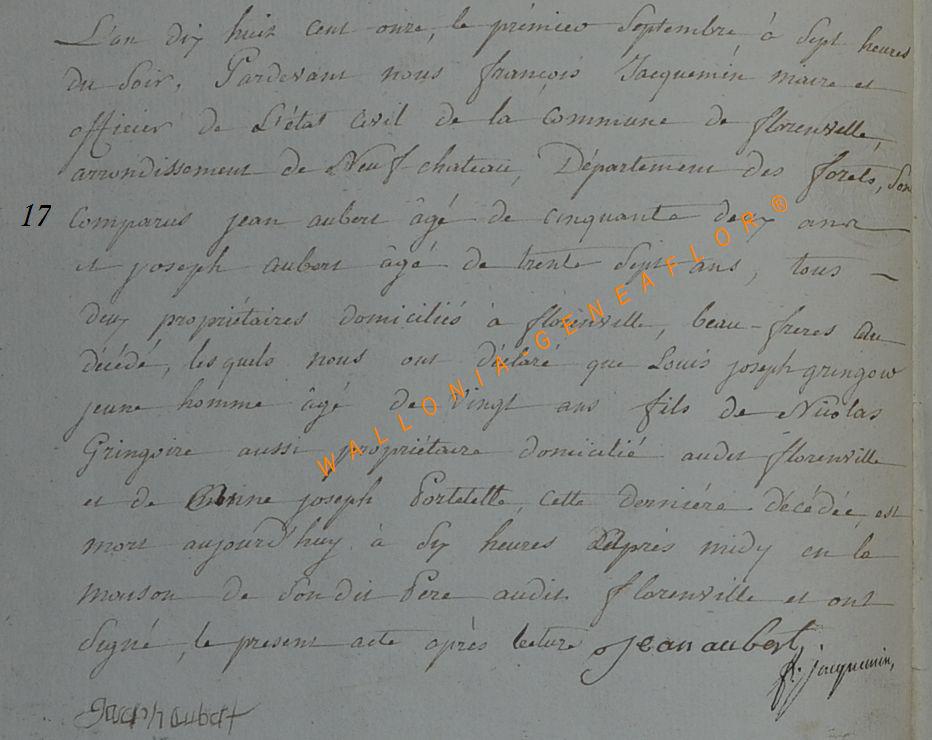 L'an dix huit cent onze, le prémier Septembre à Sept heures
du Soir, Pardevant nous françois Jacquemin maire et
officier de L'état Civil de la Commune de florenville,
arrondissement de Neufchateau, Département des forets, Son
17 Comparus jean aubert âgé de cinquante deux ans
et joseph aubert âgé de trente Sept ans, tous -
deux propriétaires domiciliés à florenville, beau-freres au
décédé, lesquels nous ont déclaré que Louis joseph gringoir
jeune homme âgé de Vingt ans fils de Nicolas
Gringoire aussi propriétaire domicilié audit florenville
et de Anne joseph Portelette, cette derniére décédée, est
mort aujourd'huy à Six heures Après midy en la
maison de Son dit Pere audit florenville et ont
Signé, le present acte après lecture jean aubert,
f: jacquemin,
Joseph aubert
WALLONIA-GENEAFLOR®